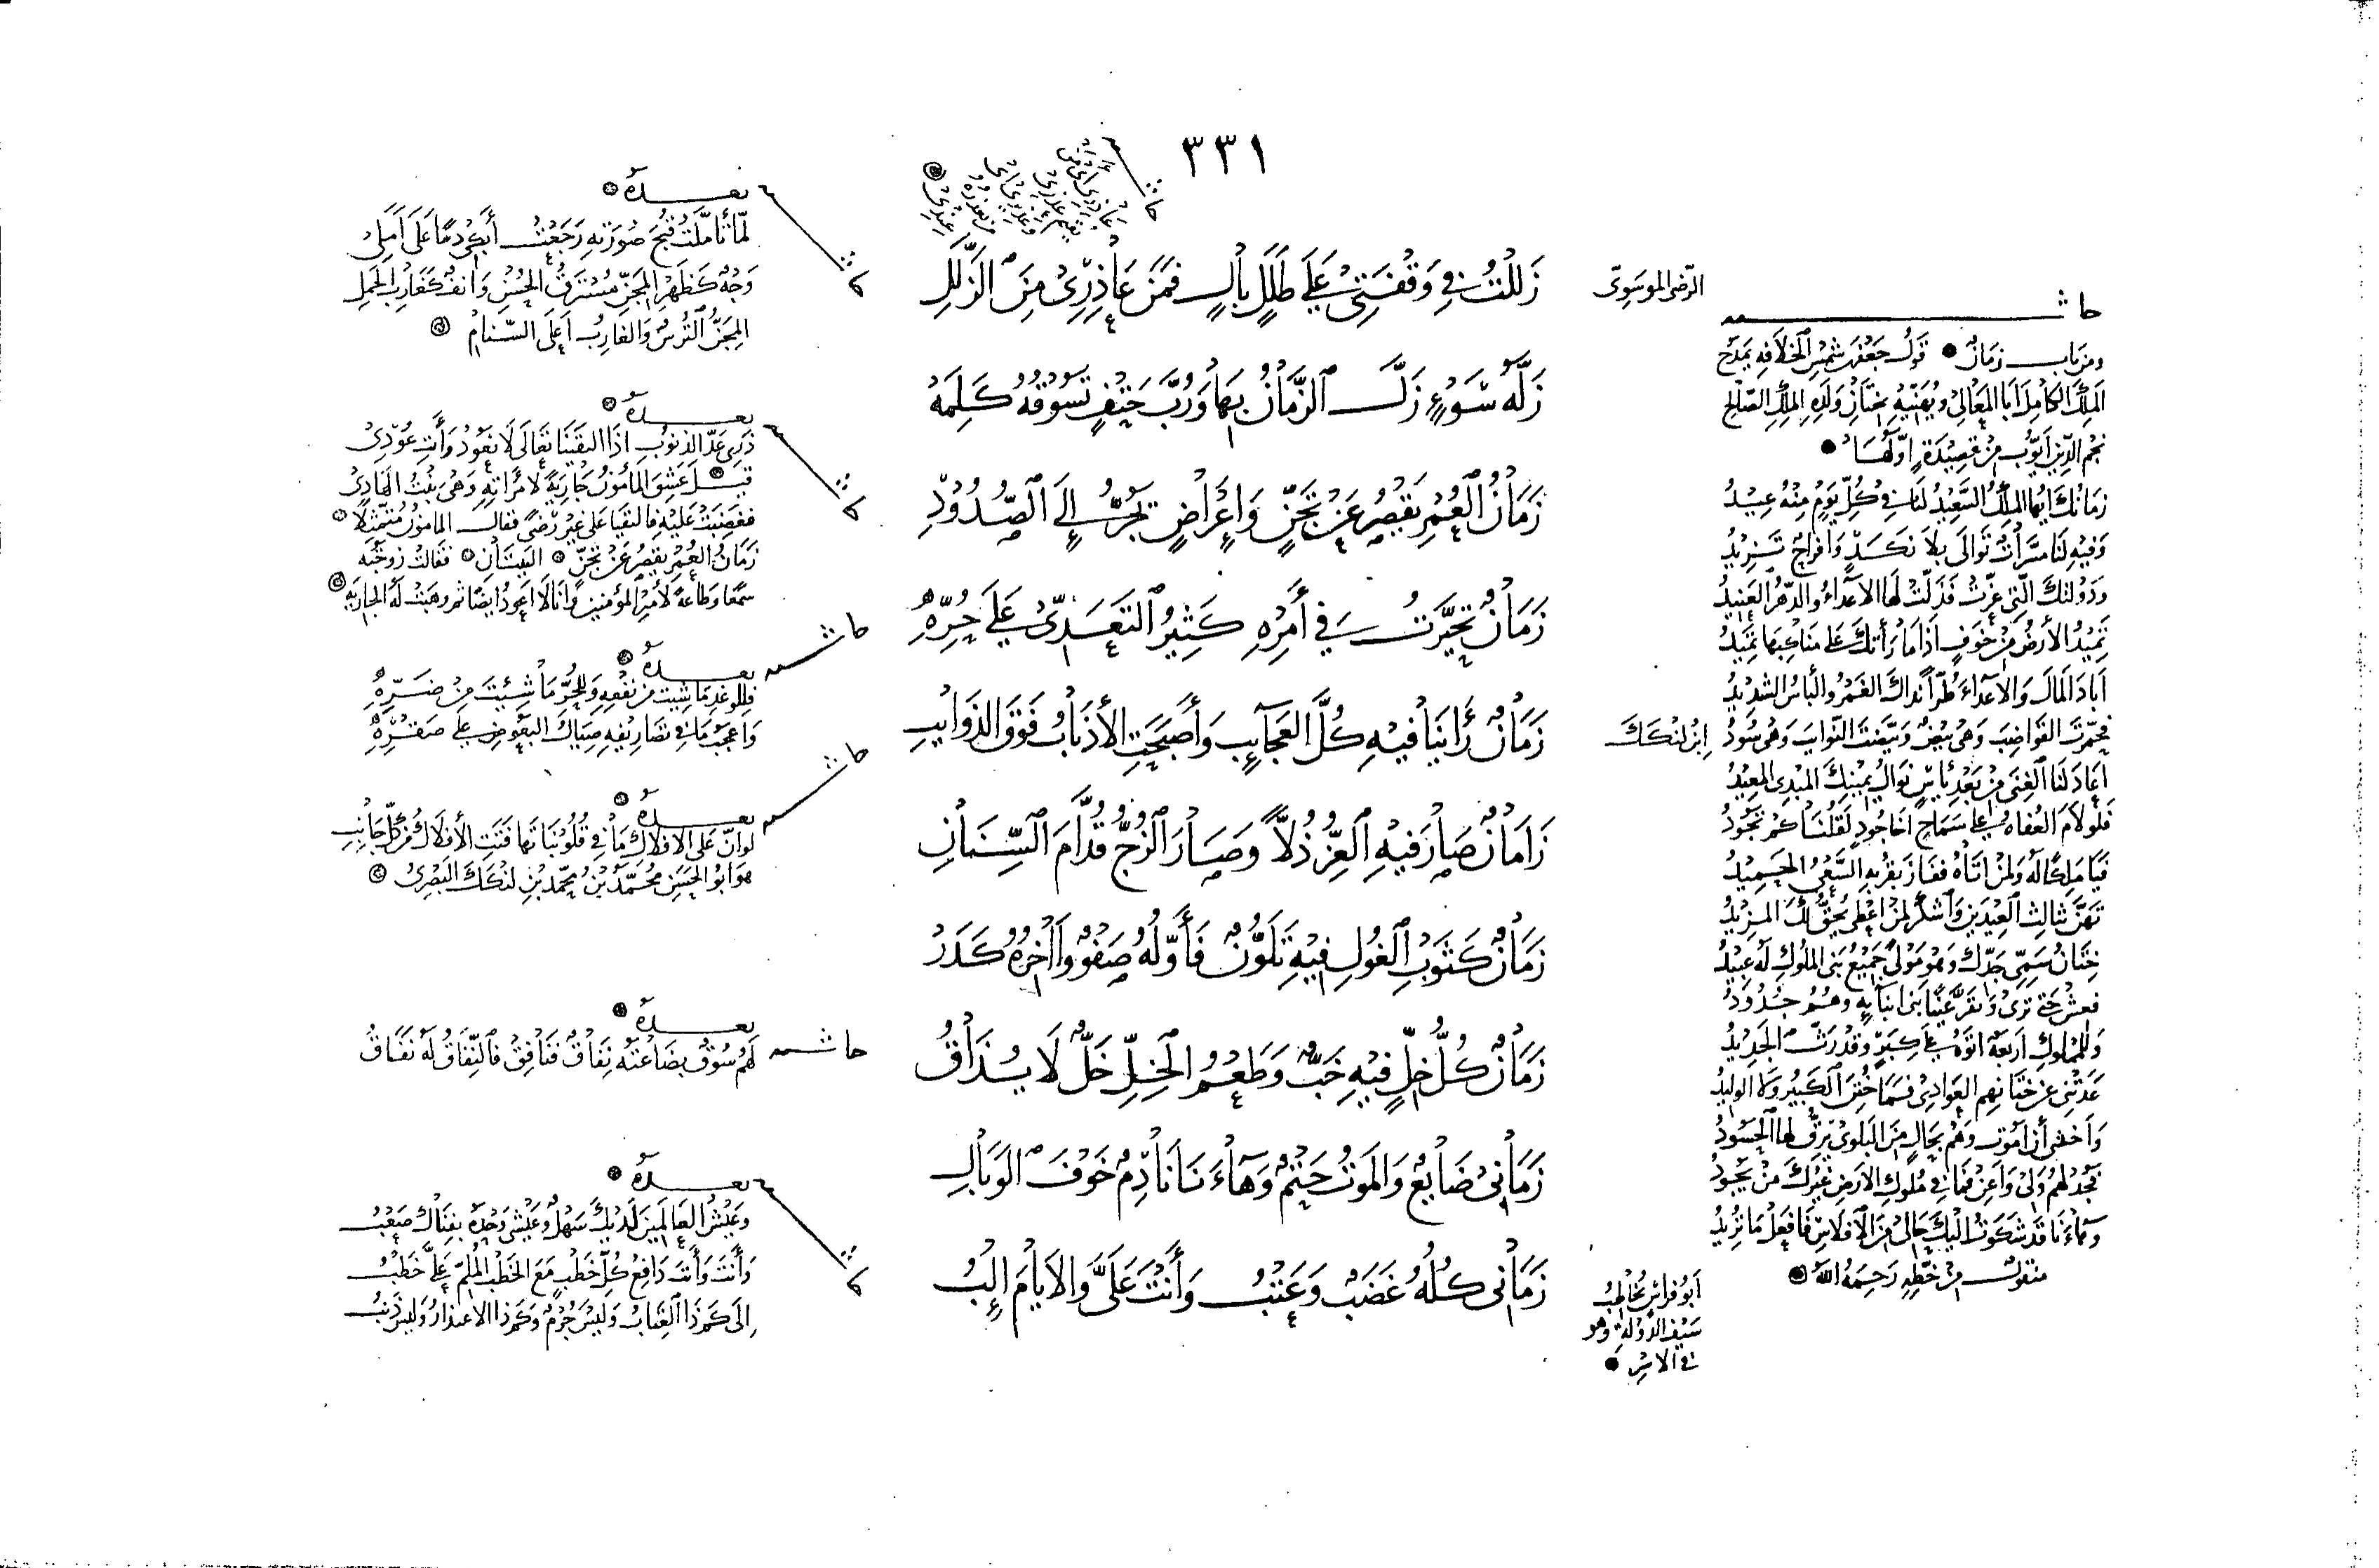 ٣٣١
حاشية
عاذري أي من
يقيم عذري
وعذيري أي
من يعذره
عندي
الرضى الموسوى
زَلَلْتُ فِي وَقْفَتِي عَلَى طَلَلٍ بِالٍ فَمَنْ عَاذِرِي مِنَ الزَّلَلِ
زَلَّةُ سَوْءٍ زَلَّ الزَّمَانُ بِهَا وَرُبَّ حَتْفٍ تَسُوقُهُ كَلِمَهْ
زَمَانُ العُمْرِ يَقْصُرُ عَنْ تَجَنٍّ وَإِعْرَاضٍ يَجُرُّ إِلَى الصُّدُودِ
زَمَانٌ تَحَيَّرْتُ فِي أَمْرِهِ كَثِيرُ التَّعَدِّي عَلَى حُرِّهِ
ابن لنكك
زَمَانٌ رَأَيْنَا فِيهِ كُلَّ العَجَآيِبِ وَأَصْبَحَتِ الأَذْنَابُ فَوْقَ الذَوَايِبِ
زَمَانٌ صَارَ فِيهِ العِزُّ ذُلاًّ وَصَارَ الزُّجُّ قُدَّامَ السِّنَانِ
زَمَانٌ كَثَوْبِ الغُولِ فِيْهِ تَلَوُّنٌ فَأَوَّلُهُ صَفْوٌ وَآخِرُهُ كَدَرُ
زَمَانٌ كُلُّ خِلٍّ فِيْهِ خَبٌّ وَطَعْمُ الخِلِّ خَلٌّ لَا يُذَاقُ
زَمَانِي ضَايِعٌ وَالمَوْتُ حَتْمٌ وَهَآءَنَا نَادِمٌ خَوْفَ الوَبَالِ
أبو فراس يخاطب
سيف الدولة وهو
في الأسر
زَمَانِي كُلُّهُ غَضَبٌ وَعَتْبُ وَأَنْتَ عَلَيَّ وَالأَيَامُ إِلْبُ
حاشية
ومن باب زمان قول جعفر شمس الخلافة يمدح
الملك الكامل أبا المعالي ويهنيه بختان ولده الملك الصالح
نجم الدين أيوب من قصيدة أولها
زمانك أيها الملك السعيد لنا في كل يوم منه عيد
وفيه لنا مسرات توالى بلا نكد وافراح تزيد
ودولتك التي عزت فذلت لها الاعداء والدهر العنيد
تميد الأرض من خوف إذا ما رأتك على مناكبها تميد
أباد المال والاعداء طرا نداك الغمر والباس الشديد
فحمرت القواضب وهي بيض وبيضت النوايب وهي سود
أعاد لنا الغنى من بعد ياس نوال يمينك المبدي المعيد
فلو لام العفاة على سماح أخا جود لقلنا كم تجود
فيا ملكا له ولمن أتاه ففاز بقربه السعي الحميد
تهن ثالث العيدين واشكر لمن أعطى يحق لك المزيد
ختان سمي جدك وهو مولى جميع بني الملوك له عبيد
فعش حتى ترى وتقر عينا بني ابنايه وهم جدود
وللمملوك أربعة أتوه على كبر وقد رث الجديد
عدتني عن ختانهم العوادي فما ختن الكبير ولا الوليد
وأخشى أن أموت وهم بحال من البلوى يرق لها الحسود
فجد لهم ولي واعن فما في ملوك الأرض غيرك من يجود
وهاءنا قد شكوت إليك حالي من الافلاس فافعل ما تريد
منقول من خطه رحمه الله
حاشية
بعده
لما تأملت قبح صورته رجعت أبكي دما على أملي
وجه كظهر المجن مسترق الحسن وانف كغارب الجمل
المجن الترس والغارب أعلى السنام
حاشية
بعده
ذري عد الذنوب إذا التقينا تعالي لا نعود وأنت عودي
قيل عشق المأمون جارية لامرأته وهي بنت الهادي
فغضبت عليه فالتقيا على غير رضى فقال المامون متمثلا
زمان العمر يقصر عن تجن البيتان فقالت زوجته
سمعا وطاعة لأمير المؤمنين وانا لا اعود ايضا ثم وهبت له الجارية
حاشية
بعده
فللوغد ما شيت من نفعه وللحر ما شيت من ضره
وأعجب ما في تصاريفه صيال البعوض على صقره
حاشية
بعده
لو ان على الافلاك ما في قلوبنا تهافتت الأفلاك من كل جانب
هو أبو الحسن محمد بن محمد بن لنكك البصري
حاشية
بعده
لهم سوق بضاعته نفاق فنافق فالنفاق له نفاق
حاشية
بعده
وعيش العالمين لديك سهل وعيشي وحده بفناك صعب
وأنت وأنت دافع كل خطب مع الخطب الملم علي خطب
إلى كم ذا العتاب وليس جرم وكم ذا الاعتذار وليس ذنب